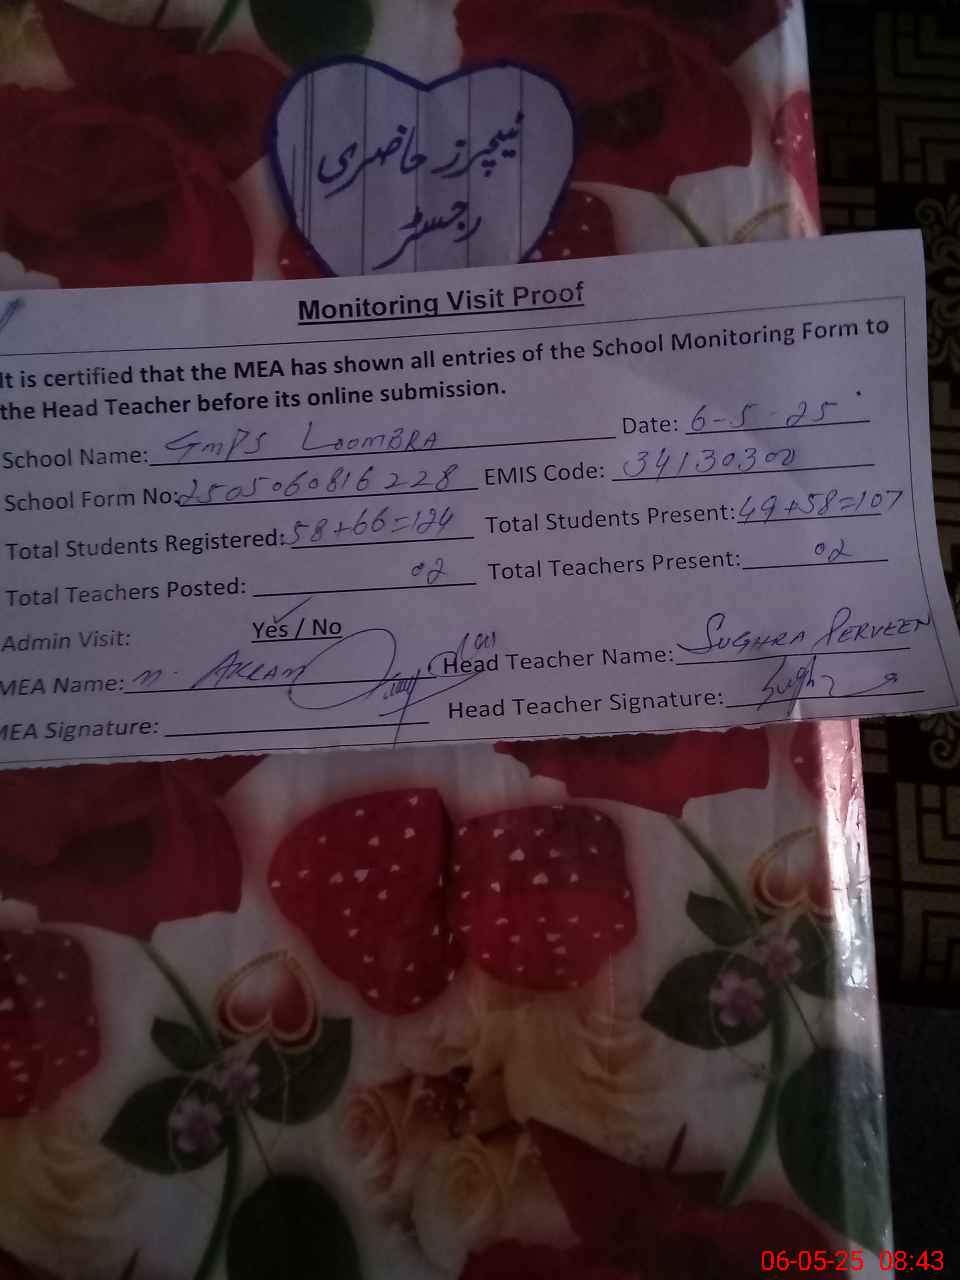 ٹیچرز حاضری
رجسٹر
Monitoring Visit Proof
It is certified that the MEA has shown all entries of the School Monitoring Form to
the Head Teacher before its online submission.
School Name: GMPS LOOMBRA Date: 6-5-25
School Form No: 2505060816228 EMIS Code: 34130300
Total Students Registered: 58+66=124 Total Students Present: 49+58=107
Total Teachers Posted: 02 Total Teachers Present: 02
Admin Visit: Yes / No
MEA Name: M. AKRAM Head Teacher Name: SUGHRA PERVEEN
MEA Signature: Head Teacher Signature: Sugh
06-05-25 08:43